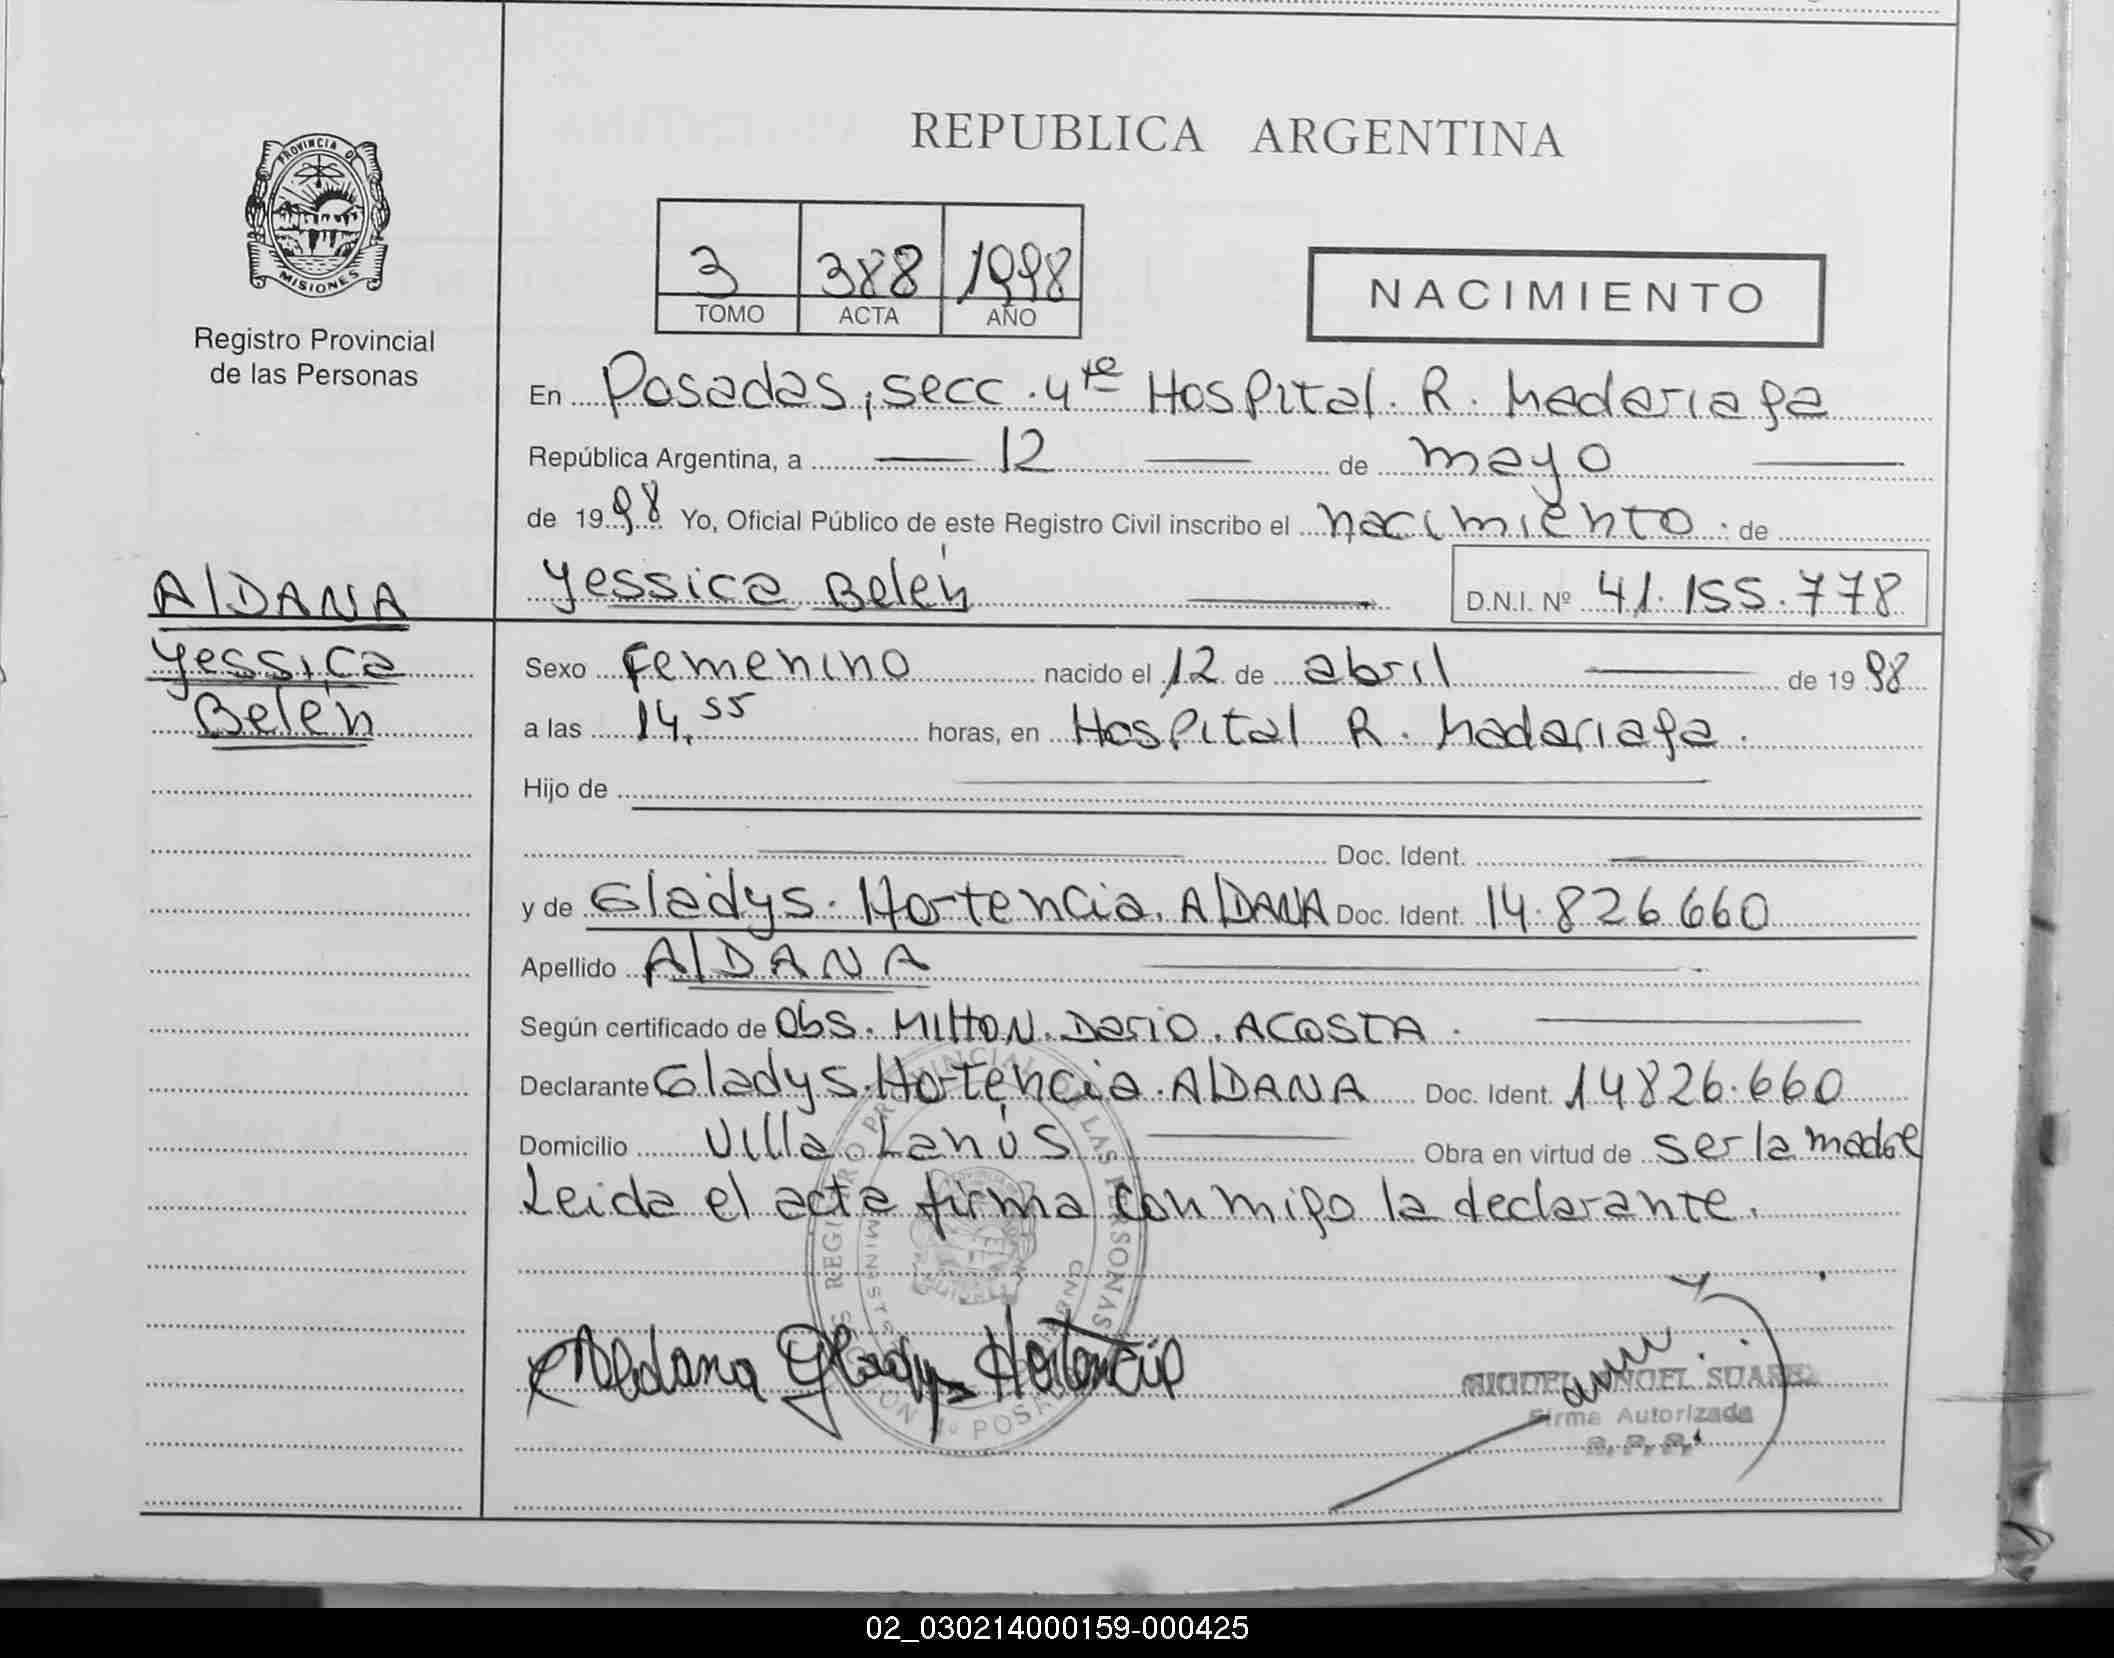 REPUBLICA ARGENTINA
PROVINCIA D
MISIONES
Registro Provincial
de las Personas
3 388 1998
TOMO ACTA AÑO
NACIMIENTO
En Posadas, secc. 4ta Hospital. R. Madariaga
República Argentina, a 12 de mayo
de 1998 Yo, Oficial Público de este Registro Civil inscribo el nacimiento. de
Yessica Belén D.N.I. Nº 41.155.778
AlDANA
Yessica
Belén
Sexo Femenino nacido el 12 de abril de 1998
a las 14,55 horas, en Hospital R. Madariaga.
Hijo de
Doc. Ident.
y de Gladys. Hortencia. AlDANA Doc. Ident. 14.826.660
Apellido AlDANA
Según certificado de Obs. MIltoN. Dario. ACOSTA.
Declarante Gladys. Hortencia. AlDANA Doc. Ident. 14826.660
Domicilio Villa Lanús Obra en virtud de ser la madre
Leida el acta firma conmigo la declarante.
REGISTRO PROVINCIAL DE LAS PERSONAS
POSADAS
Aldana Gladys Hortencia
MIGUEL ANGEL SUAREZ
Firma Autorizada
R.P.P.
02_030214000159-000425